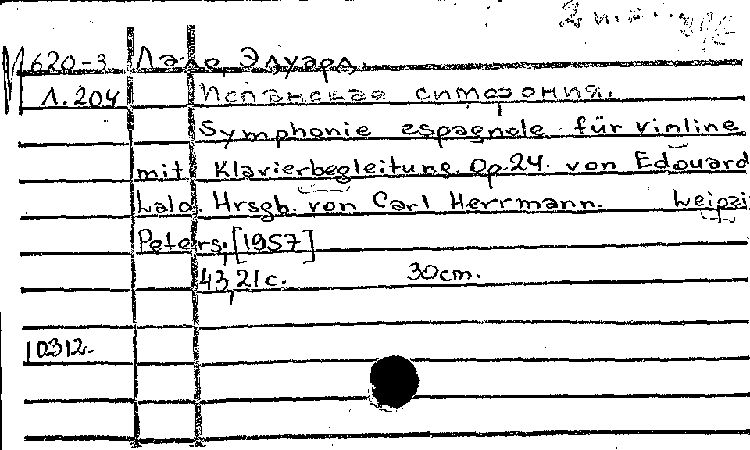 620-3 Лало, Эдуард.
Л.204 Испанская симфония.
Symphonie espagnole für vinline
mit Klavierbegleitung. Op.24. von Edouard
Lalo. Hrsgb. von Carl Herrmann. Leipzi
Peters, [1957]
43,21c. 30cm.
10312.